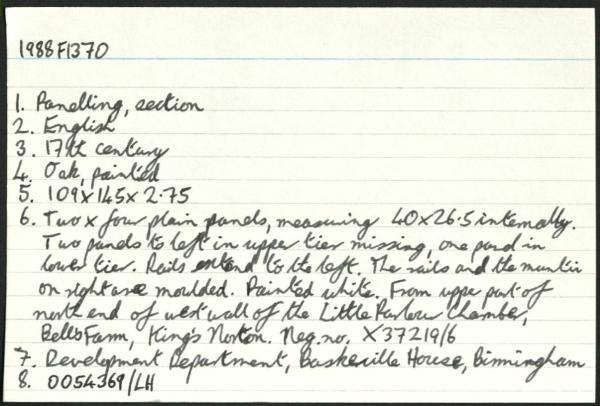 1988F1370
1. Panelling, section
2. English
3. 17th century
4. Oak, painted
5. 109x145x2.75
6. Two x four plain panels, measuring 40x26.5 internally.
Two panels to left in upper tier missing, one panel in
lower tier. Rails extend to the left. The rails and the muntin
on right are moulded. Painted white. From upper part of
north end of west wall of the Little Parlour Chamber,
Bells Farm, King's Norton. Neg. no. X37219/6
7. Development Department, Baskerville House, Birmingham
8. 0054369/LH